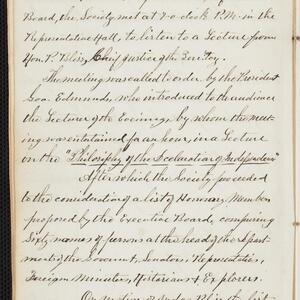 Board, the Society met at 7 o clock P.M. in the
Representative Hall, to listen to a Lecture from
Hon. P. Bliss, Chief Justice of the Ter'toy.
The meeting was called to order, by the President
Geo. Edmunds, who introduced to the audience
the Lecturer of the Evening, by whom the meet-
ing was entertained for an hour, in a Lecture
on the "Philosophy of the Declaration of Independence"
After which the Society proceeded
to the consideration of a list of Honorary Members
proposed by the Executive Board, comprising
Sixty names of persons at the head of the Depart-
ments of the Goverment, Senators, Representatives,
Foreign Ministers, Historians & Explorers.
On motion of Judge Bliss the list